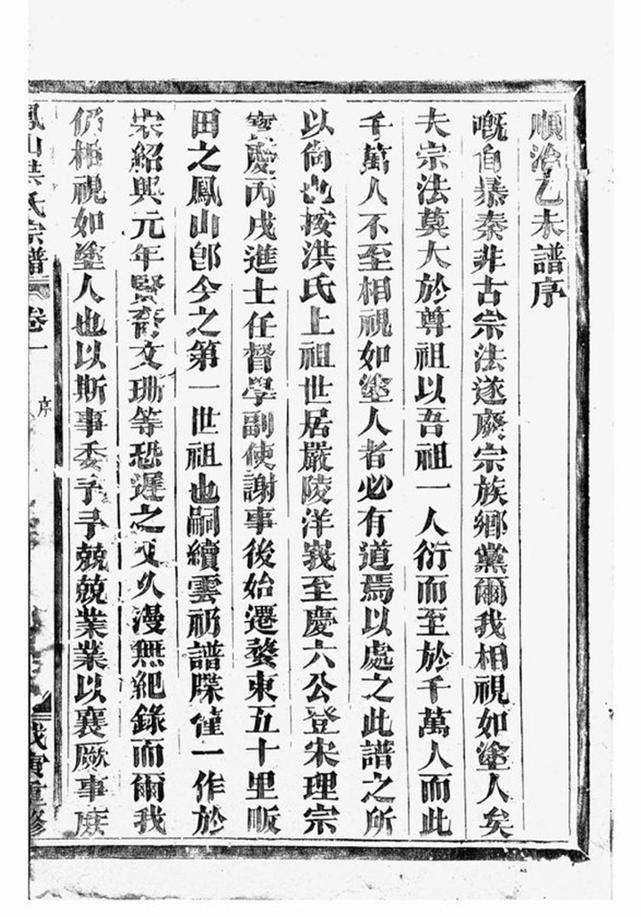 順治乙未譜序
嘅自暴秦非古宗法遂廢宗族鄉黨爾我相視如塗人矣
夫宗法莫大於尊祖以吾祖一人衍而至於千萬人而此
千萬人不至相視如塗人者必有道焉以處之此譜之所
以尙也按洪氏上祖世居嚴陵洋峩至慶六公登宋理宗
寳慶丙戌進士任督學副使謝事後始遷婺東五十里畈
田之鳳山卽今之第一世祖也嗣續雲礽譜牒僅一作於
宋紹興元年賢裔文珊等恐遲之又久漫無紀錄而爾我
仍相視如塗人也以斯事委予予兢兢業業以襄厥事族
鳳山洪氏宗譜 卷一 序 寅重修